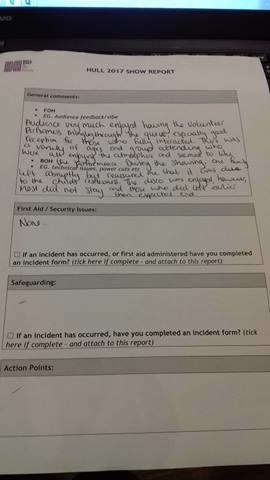 HULL 2017 SHOW REPORT
General comments:
• FOH
• EG. Audience feedback/vibe
Audience very much enjoyed having the volunteer
performers the queue especially good
reception for those who fully interacted. There was
a variety of ages and groups attending who
were all enjoying the atmosphere and seemed to like
• BOH the performance. During the showing, one family
• EG. technical issues, power cuts etc
left abruptly but reassured me that it was due
to the childs restlessness. The disco was enjoyed however,
most did not stay and those who did left earlier
than expected end
First Aid / Security Issues:
None
☐ If an incident has occurred, or first aid administered have you completed
an incident form? (tick here if complete - and attach to this report)
Safeguarding:
☐ If an incident has occurred, have you completed an incident form? (tick
here if complete - and attach to this report)
Action Points: